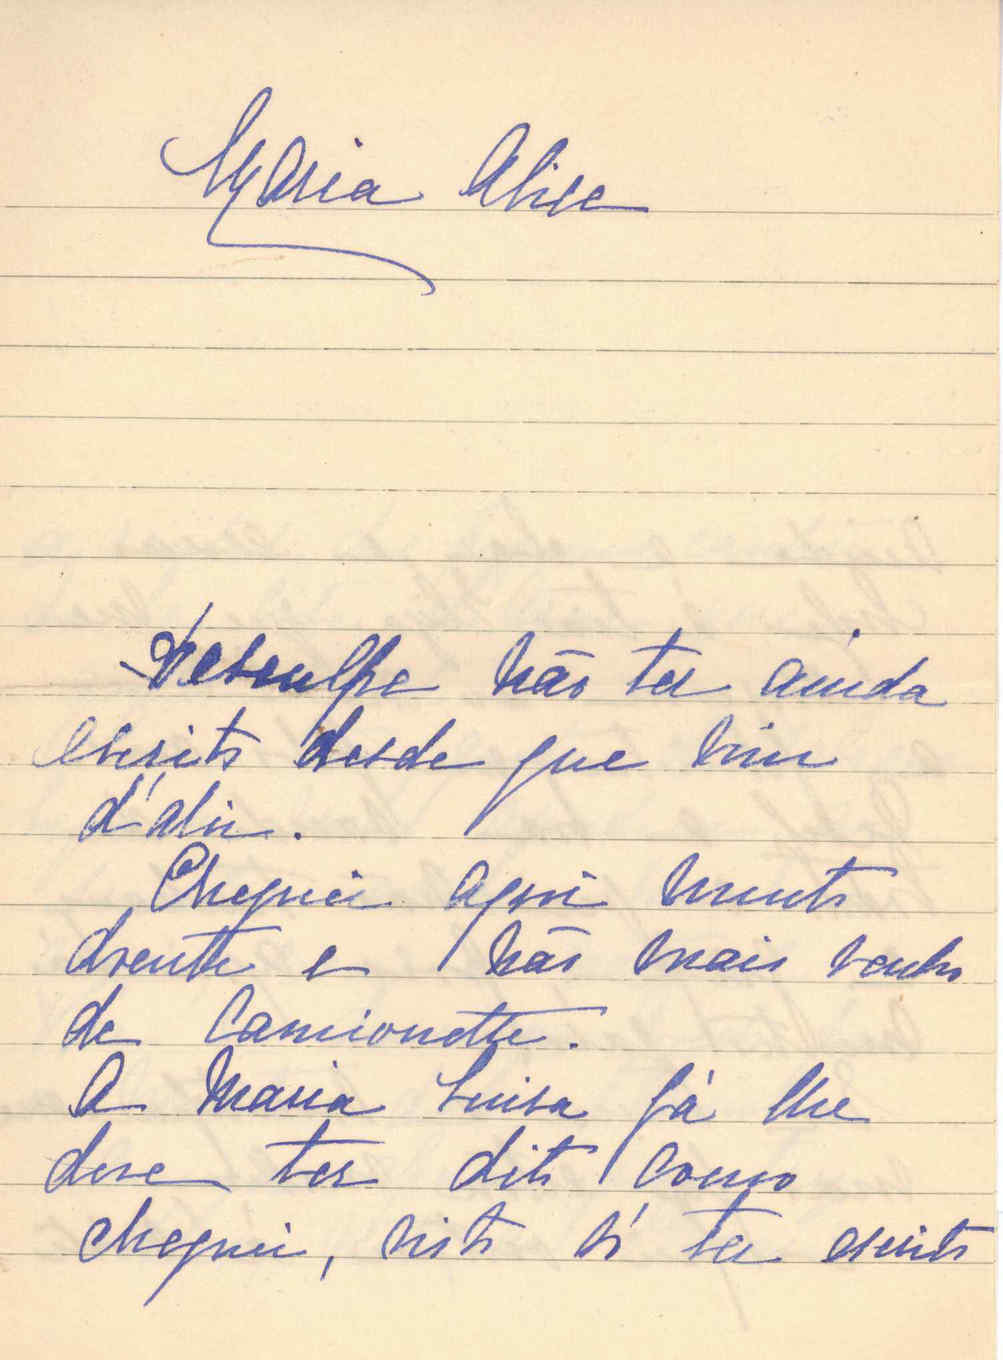 Maria Alice
Desculpe não ter ainda
escrito desde que vim
d'ahi.
Cheguei aqui muito
doente e não mais venho
de camionette.
A Maria Luisa já lhe
deve ter dito como
cheguei, visto ter escrito